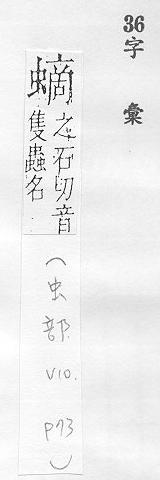 36字彙
蟎
之石切音
隻蟲名
(虫部.
V10.
P73)